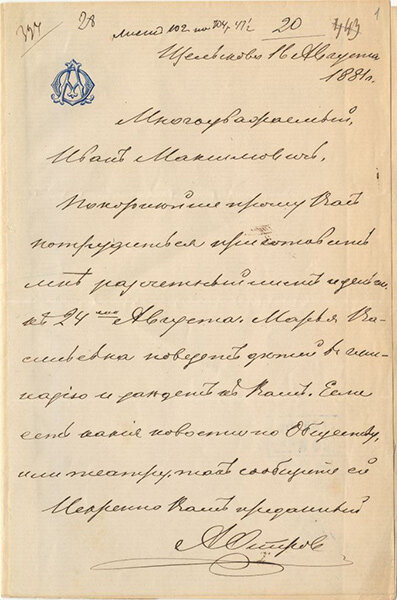 397 28 Листъ 102 по 20 143 1
Щелыково 16 Августа
1881 г.
Многоуважаемый,
Иванъ Максимовичъ,
Покорнѣйше прошу Васъ
потрудиться приготовить
мнѣ разсчетный листъ и деньги
къ 24му Августа. Марья Ва-
сильевна повезетъ дѣтей въ гим-
назію и заѣдетъ къ Вамъ. Если
есть какія новости по Обществу,
или театру, такъ сообщите ей
Искренно Вамъ преданный
А Остров